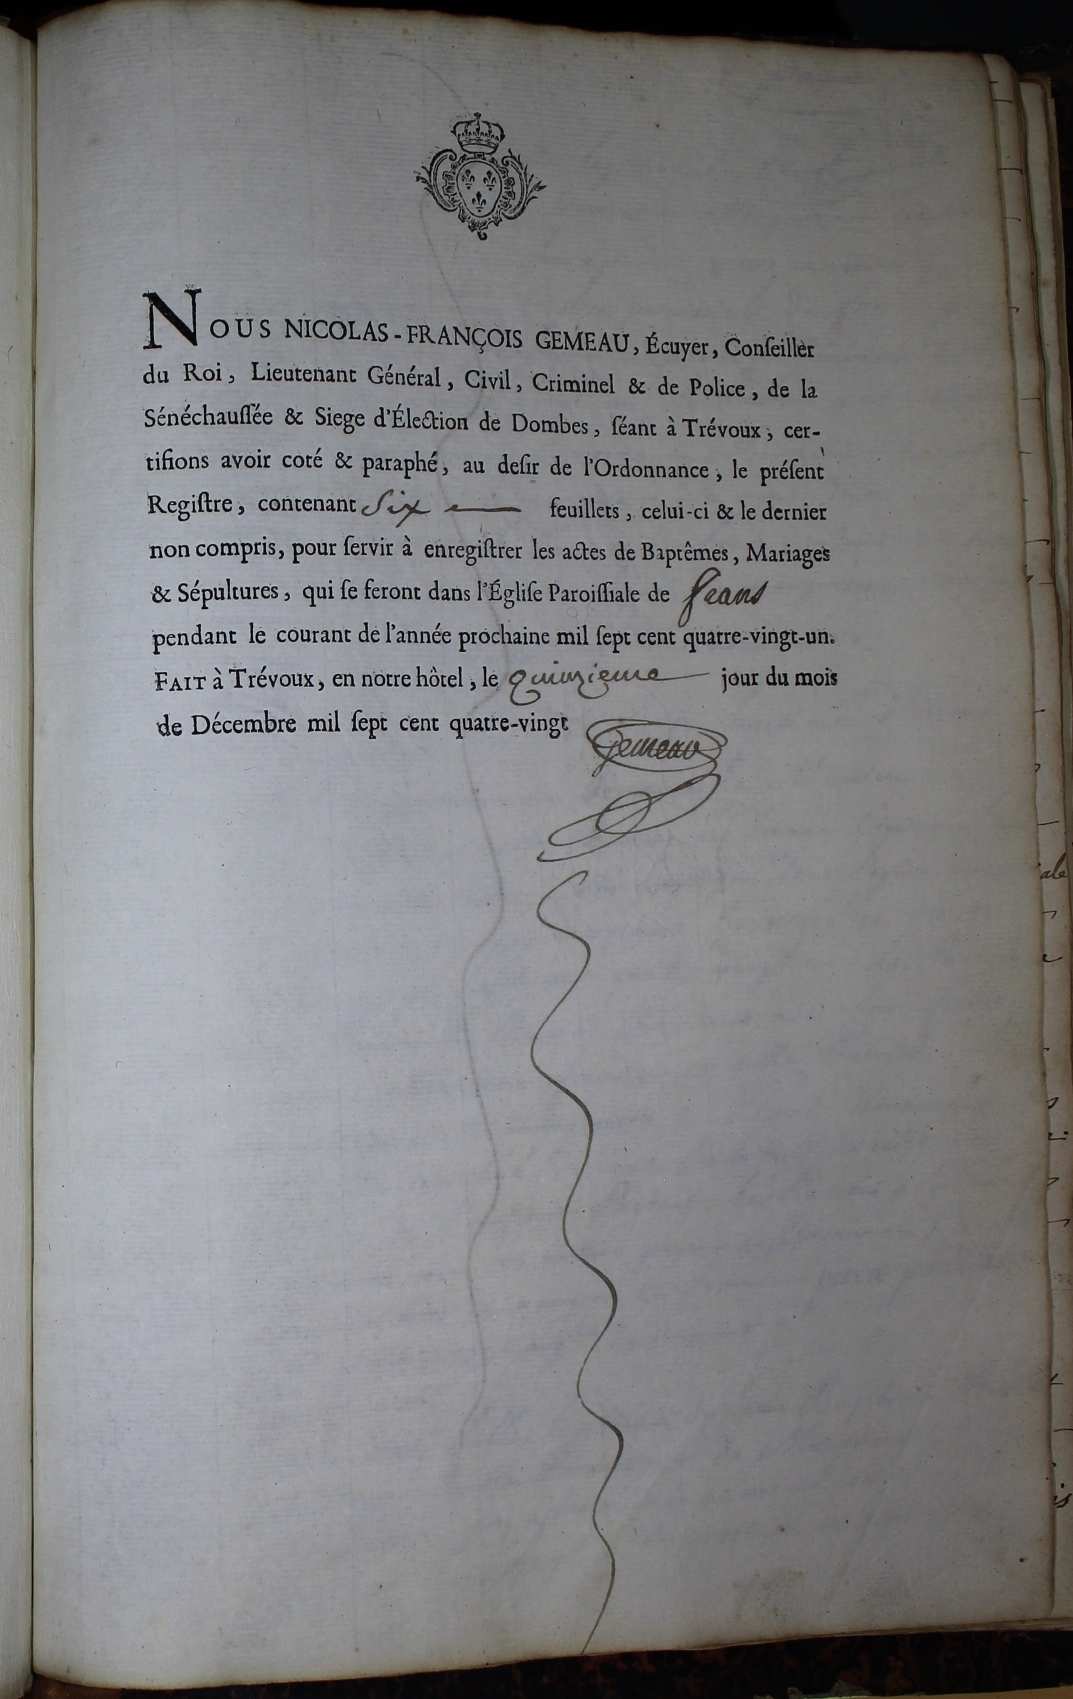 NOUS NICOLAS-FRANÇOIS GEMEAU, Écuyer, Conſeiller
du Roi, Lieutenant Général, Civil, Criminel & de Police, de la
Sénéchauſſée & Siege d'Élection de Dombes, ſéant à Trévoux, cer-
tifions avoir coté & paraphé, au deſir de l'Ordonnance, le préſent
Regiſtre, contenant Six feuillets, celui-ci & le dernier
non compris, pour ſervir à enregiſtrer les actes de Baptêmes, Mariages
& Sépultures, qui ſe feront dans l'Égliſe Paroiſſiale de feans
pendant le courant de l'année prochaine mil ſept cent quatre-vingt-un.
FAIT à Trévoux, en notre hôtel, le quinzieme jour du mois
de Décembre mil ſept cent quatre-vingt
Gemeau